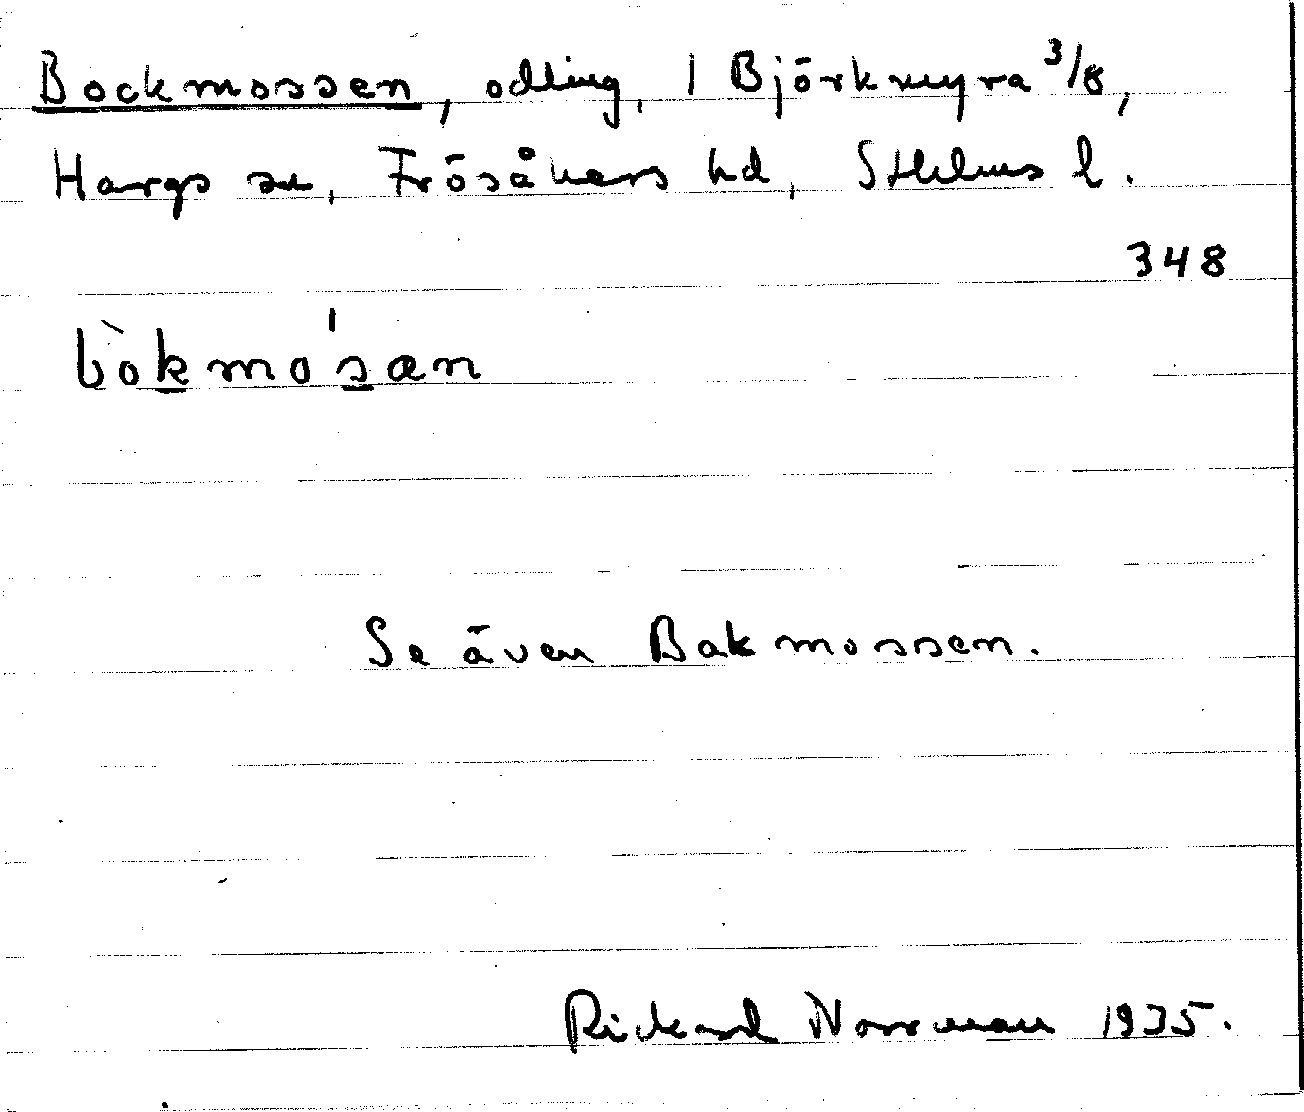 Bockmossen, odling, 1 Björkmyra 3/8,
Hargs sn, Frösåkers hd, Sthlms l.
348
bòkmo'san
Se även Bakmossen.
Rickard Norrman 1935.